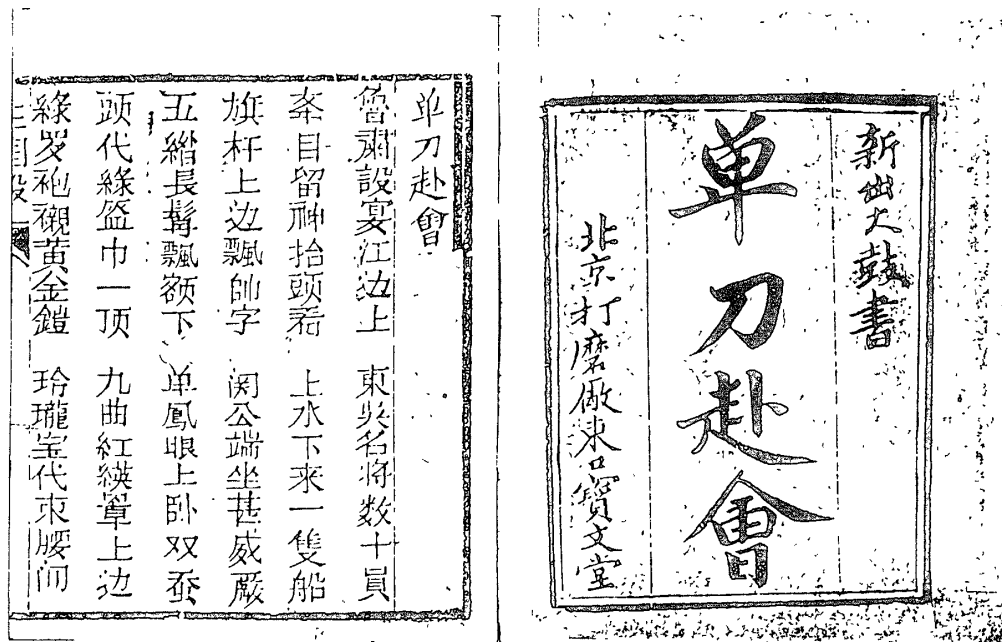 新出大鼓書
单刀赴會
北京打磨厰東口寳文堂
单刀赴會
魯肅設宴江边上 東吳名將数十員
目留神抬頭看 上水下来一雙船
旗杆上边飄帥字 関公端坐甚威嚴
五綹長髯飄额下 单鳳眼上卧双蚕
頭代綠盔巾一顶 九曲紅纓罩上边
綠罗袍襯黄金鎧 玲瓏宝代束腰间
三国段